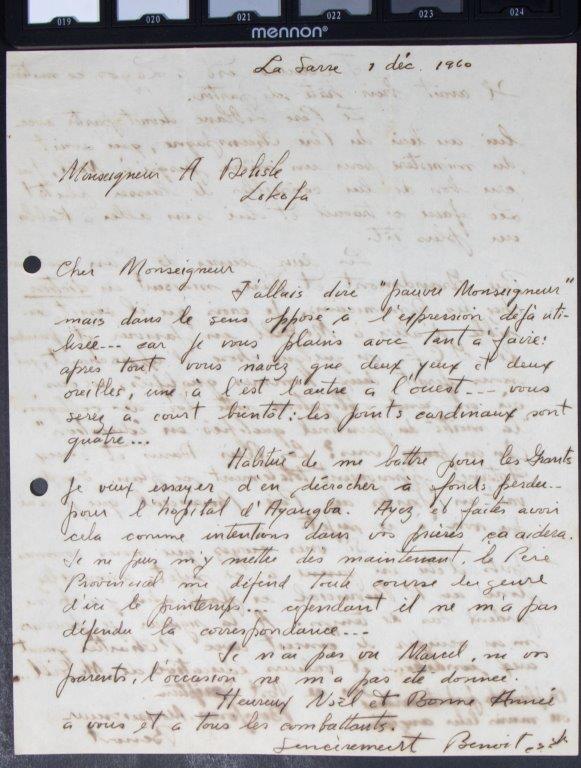 019 020 021 022 023 024
mennon®
La Sarre 1 déc. 1960
Monseigneur A Delisle
Lokofa
Cher Monseigneur
J'allais dire "pauvre Monseigneur"
mais dans le sens opposé à l'expression déjà uti-
lisée--- car je vous plains avec tant à faire:
après tout vous n'avez que deux yeux et deux
oreilles, une à l'est l'autre à l'ouest--- vous
serez à court bientôt: les points cardinaux sont
quatre...
Habitué de me battre pour les Grants
je veux essayer d'en décrocher à fonds perdu--
pour l'hopital d'Ayangba. Ayez et faites avoir
cela comme intentions dans vos prières ça aidera.
Je ne puis m'y mettre dès maintenant, le Père
Provincial me défend toute course du genre
d'ici le printemps... cependant il ne m'a pas
défendu la correspondance---
Je n'ai pas vu Marcel, ni vos
parents, l'occasion ne m'a pas été donnée.
Heureux Noël et Bonne Année
à vous et à tous les combattants.
Sincèrement Benoit